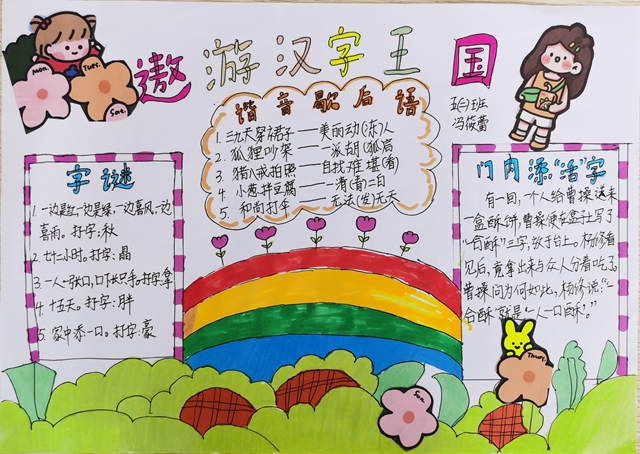 遨游汉字王国
Mon.
Tues.
Sat.
五(二)班
冯筱蕾
谐音歇后语
1. 三九天穿裙子——美丽动(冻)人
2. 狐狸吵架——一派胡(狐)言
3. 猎人戒拍照——自找难堪(看)
4. 小葱拌豆腐——一清(青)二白
5. 和尚打伞——无法(发)无天
字谜
1. 一边是红,一边是绿,一边喜风,一边
喜雨。打字:秋
2. 七十二小时。打字:晶
3. 一人一张口,口下长只手。打字:拿
4. 十五天。打字:胖
5. 家中添一口。打字:豪
门内添“活”字
有一回,
人给曹操送来
一盒酥饼,曹操便在盒子上写了
“一合酥”三字,放于台上。杨修看
见后,竟拿出来与众人分着吃了。
曹操问为何如此,杨修说:“一
合酥’就是‘一人一口酥’。”
Thurs.
Sun.